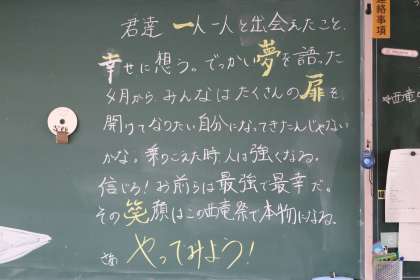 君達 一人一人と出会えたこと、
幸せに想う。でっかい夢を語った
4月から、みんなはたくさんの扉を
開けてなりたい自分になってきたんじゃない
かな。乗りこえた時、人は強くなるね。
信じろ!お前らは最強で最幸だ。
その笑顔はこの西竜祭で本物になる。
さあ やってみよう!
連絡事項